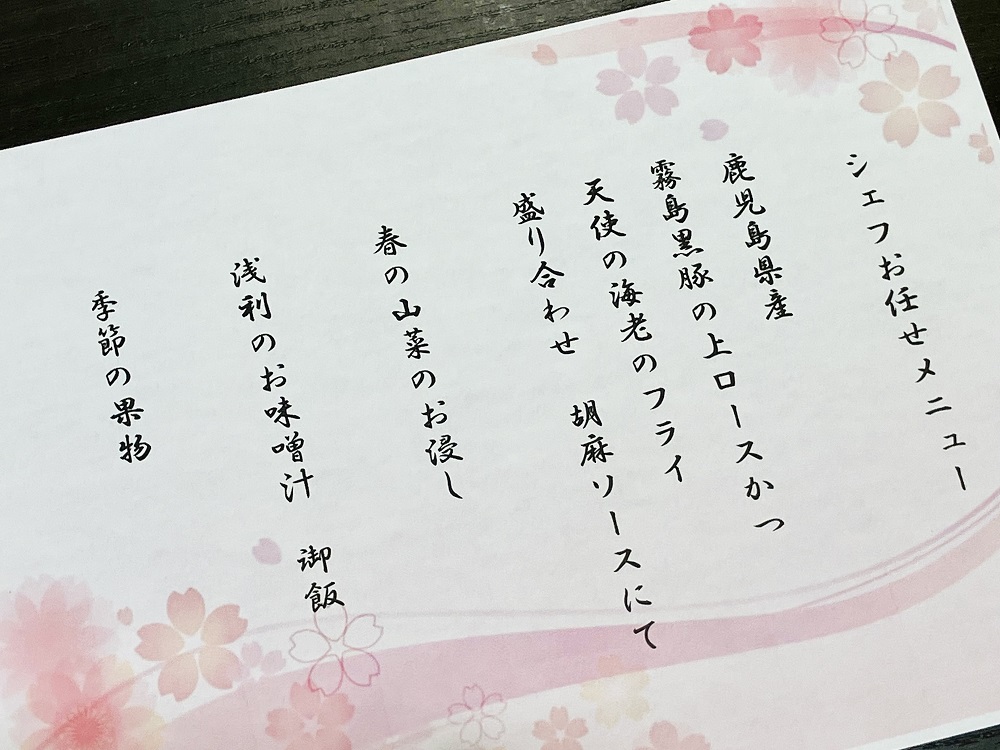 シェフお任せメニュー
鹿児島県産
霧島黒豚の上ロースかつ
天使の海老のフライ
盛り合わせ 胡麻ソースにて
春の山菜のお浸し
浅利のお味噌汁 御飯
季節の果物